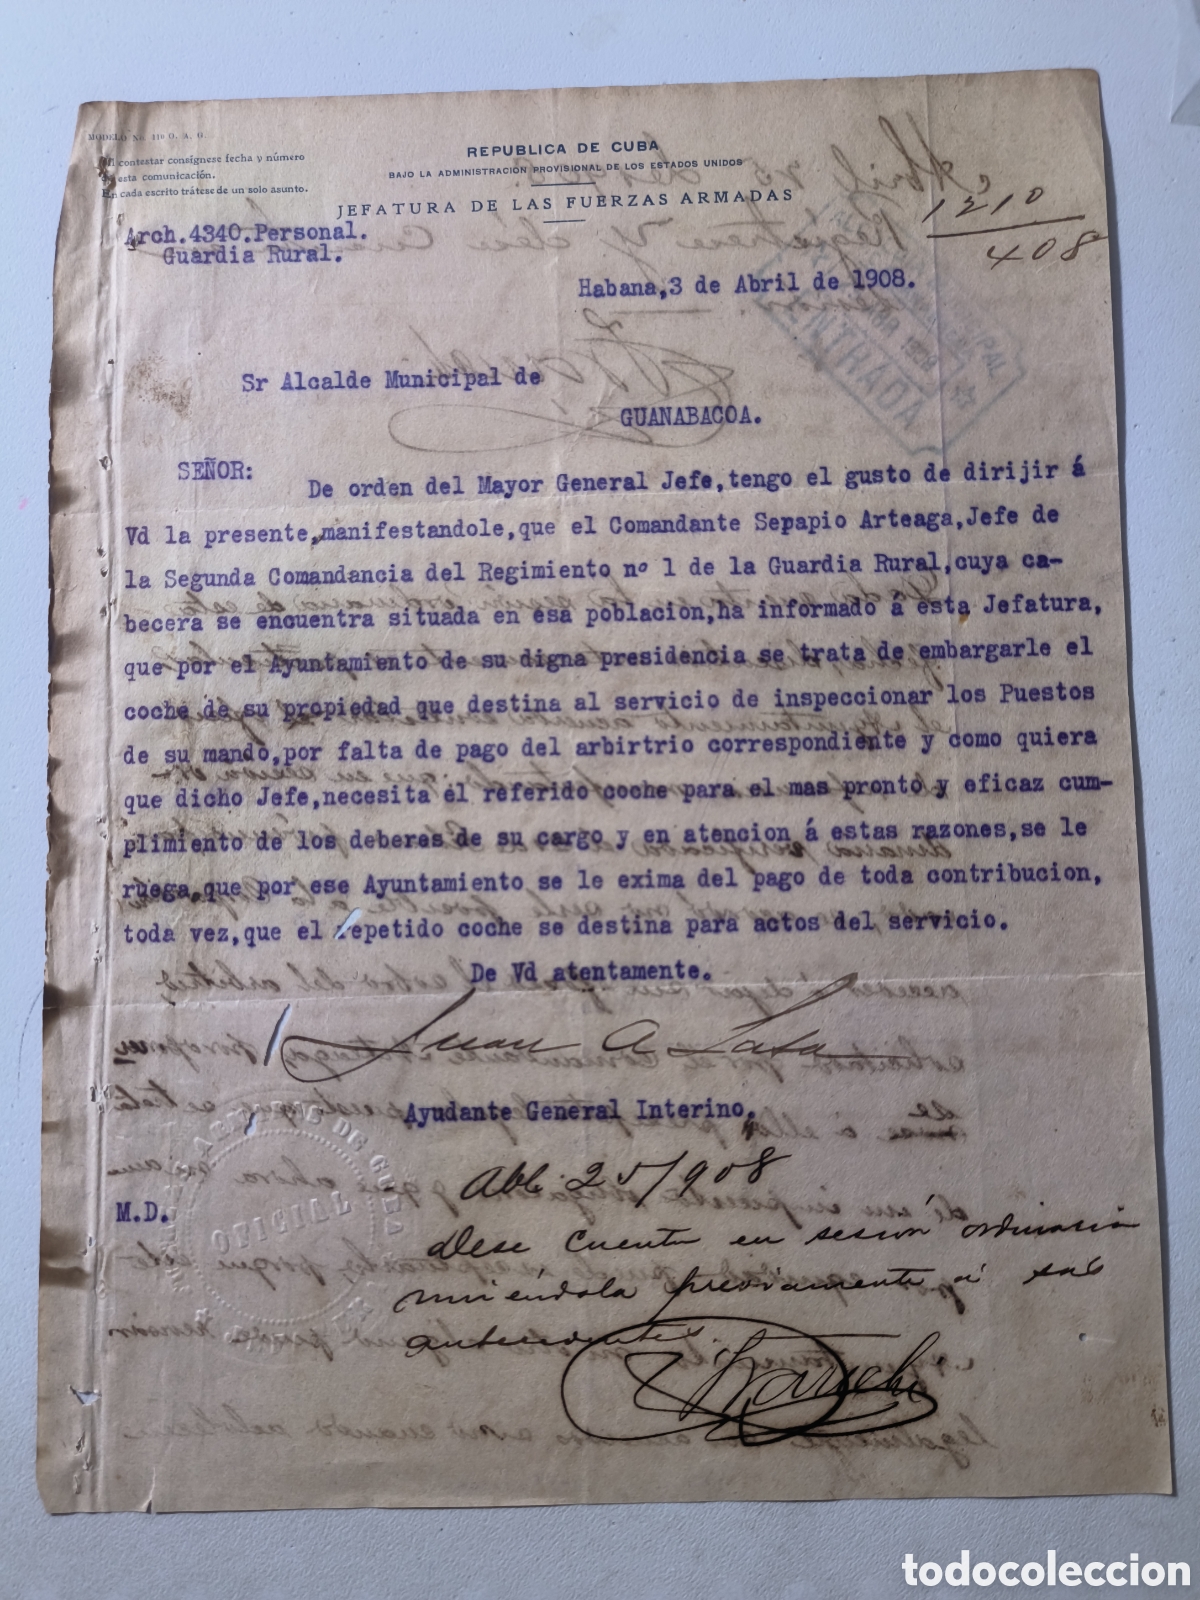 MODELO No. 116 O. A. G.
Al contestar consígnese fecha y número
de esta comunicación.
En cada escrito trátese de un solo asunto.
REPUBLICA DE CUBA
BAJO LA ADMINISTRACION PROVISIONAL DE LOS ESTADOS UNIDOS
JEFATURA DE LAS FUERZAS ARMADAS
1210
408
Arch.4340.Personal.
Guardia Rural.
Habana,3 de Abril de 1908.
ENTRADA
Sr Alcalde Municipal de
GUANABACOA.
SEÑOR:
De orden del Mayor General Jefe,tengo el gusto de dirijir á
Vd la presente,manifestandole,que el Comandante Sepapio Arteaga,Jefe de
la Segunda Comandancia del Regimiento nº 1 de la Guardia Rural,cuya ca-
becera se encuentra situada en esa poblacion,ha informado á esta Jefatura,
que por el Ayuntamiento de su digna presidencia se trata de embargarle el
coche de su propiedad que destina al servicio de inspeccionar los Puestos
de su mando,por falta de pago del arbirtrio correspondiente y como quiera
que dicho Jefe,necesita el referido coche para el mas pronto y eficaz cum-
plimiento de los deberes de su cargo y en atencion á estas razones,se le
ruega,que por ese Ayuntamiento se le exima del pago de toda contribucion,
toda vez,que el repetido coche se destina para actos del servicio.
De Vd atentamente.
Juan A Lasa
Ayudante General Interino.
OFICIAL
M.D.
Abl 25/908
Dese cuenta en sesión ordinaria
uniéndola previamente á sus
antecedentes.
todocoleccion